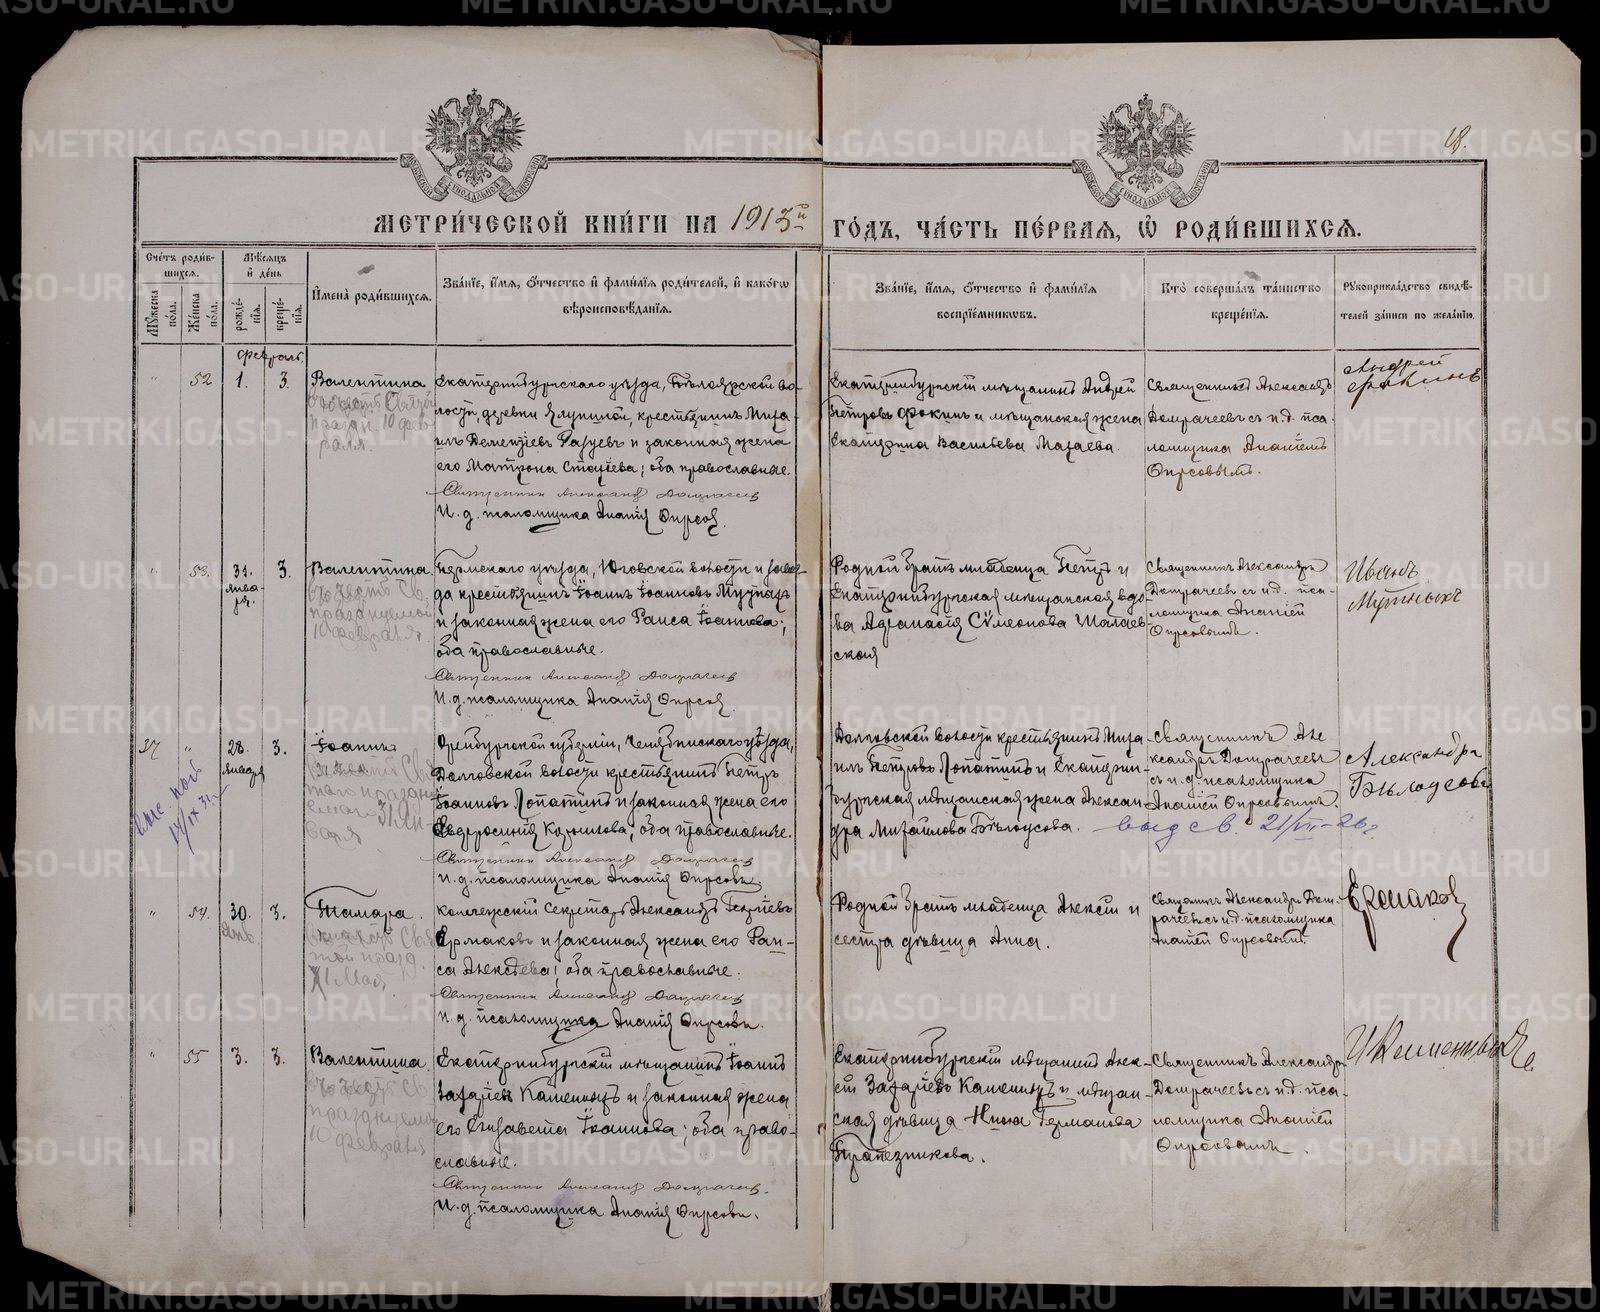 18.
МЕТРИ́ЧЕСКОЙ КНИ́ГИ НА 1913й ГО́ДЪ, ЧА́СТЬ ПЕ́РВАЯ, Ѡ РОДИ́ВШИХСЯ.
Счетъ роди́вшихся.
Му́жеска по́ла.
Же́нска по́ла.
Мѣ́сяцъ и де́нь
рожде́нїя.
креще́нїя.
Имена̀ роди́вшихся.
Зва́нїе, и́мя, о́тчество и фами́лїя роди́телей, и како́гѡ
вѣроисповѣ́данїя.
Зва́нїе, и́мя, о́тчество и фами́лїя
воспрїе́мникѡвъ.
Кто̀ соверша́лъ та́инство
креще́нїя.
Рꙋкоприкла́дство свидѣ́-
телей за́писи по жела́нїю.
февраль.
" 52 1. 3.
Валентина
въ честь Святой
празд. 10 фев
раля.
Екатеринбургскаго уѣзда, Бѣлоярской во-
лости, деревни
крестьянинъ Миха-
илъ Дементіевъ
и законная жена
его Матрона
оба православные.
Священникъ Александръ Домрачевъ
И. д. псаломщика Ананія Фирсовъ
Екатеринбургскій мѣщанинъ Андрей
Петровъ Фокинъ и мѣщанская жена
Екатерина Васильева
Священникъ Александръ
Домрачевъ съ и.д. пса-
ломщика Ананіемъ
Фирсовымъ.
Андрей
Фокинъ
" 53. 31. января. 3.
Валентина.
въ честь Св.
празднуемой
10 февраля.
Пермскаго уѣзда, Юговской волости и заво-
да крестьянинъ Іоаннъ Іоанновъ
и законная жена его Раиса Іоаннова;
оба православные.
Священникъ Александръ Домрачевъ
И. д. псаломщика Ананія Фирсовъ
Родной братъ младенца Петръ и
Екатеринбургская мѣщанская вдо-
ва Аѳанасія Сѵмеонова Шалаев-
ская
Священникъ Александръ
Домрачевъ съ и.д. пса-
ломщика Ананіей
Фирсовымъ.
Иванъ
Мутныхъ
27 " 28. января 3.
Іоаннъ
Оренбургской губерніи, Челябинскаго уѣзда,
Долговской волости крестьянинъ Петръ
Іоанновъ Лопатинъ и законная жена его
Евдросинія
оба православные.
Священникъ Александръ Домрачевъ
И. д. псаломщика Ананія Фирсовъ.
Долговской волости крестьянинъ Миха-
илъ Петровъ Лопатинъ и Екатерин-
бургская мѣщанская жена Алексан-
дра Михайлова Бѣлоусова.
выд св. 21/VII-26г
Священникъ Але
ксандръ Домрачевъ
съ и.д. псаломщика
Ананіей Фирсовымъ.
Александра
Бѣлоусова
" 54. 30. янв 3.
Тамара.
1 Мая.
Коллежскій Секретарь Александръ Георгіевъ
Ермаковъ и законная жена его Раи-
са Алексѣева; оба православные.
Священникъ Александръ Домрачевъ
И. д. псаломщика Ананія Фирсовъ.
Родной братъ младенца Алексѣй и
сестра дѣвица Анна.
Священникъ Александръ Дом-
рачевъ съ и.д. псаломщика
Ананіей Фирсовымъ.
Ермаковъ
" 55 3. 3.
Валентина.
въ честь Св
празднуемой
10 февраля
Екатеринбургскій мѣщанинъ Іоаннъ
Захаріевъ Каменныхъ и законная жена
его Елисавета Іоаннова; оба право-
славные.
Священникъ Александръ Домрачевъ.
И. д. псаломщика Ананія Фирсовъ.
Екатеринбургскій мѣщанинъ Алек-
сѣй Захаріевъ Каменныхъ и мѣщан-
ская дѣвица Нина Германова
Трапезникова.
Священникъ Александръ
Домрачевъ съ и.д. пса-
ломщика Ананіей
Фирсовымъ.
METRIKI.GASO-URAL.RU